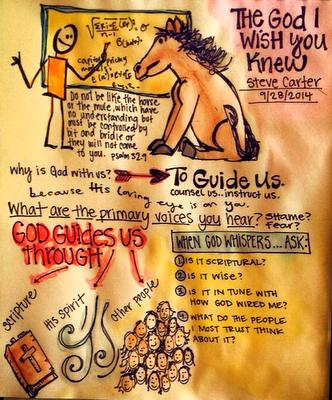 THE GOD I
WISH YOU
KNEW
Steve Carter
9/28/2014
Do not be like the horse
or the mule, which have
no understanding but
must be controlled by
bit and bridle or
they will not come
to you. psalm 32:9
Why is God with us?
To Guide Us.
counsel us...instruct us.
because His loving
eye is on you.
What are the primary voices you hear? shame?
fear?
GOD GUIDES US
THROUGH
scripture
His spirit
other people
WHEN GOD WHISPERS... ASK:
1 IS IT SCRIPTURAL?
2 IS IT WISE?
3 IS IT IN TUNE WITH
HOW GOD WIRED ME?
4 WHAT DO THE PEOPLE
I MOST TRUST THINK
ABOUT IT?